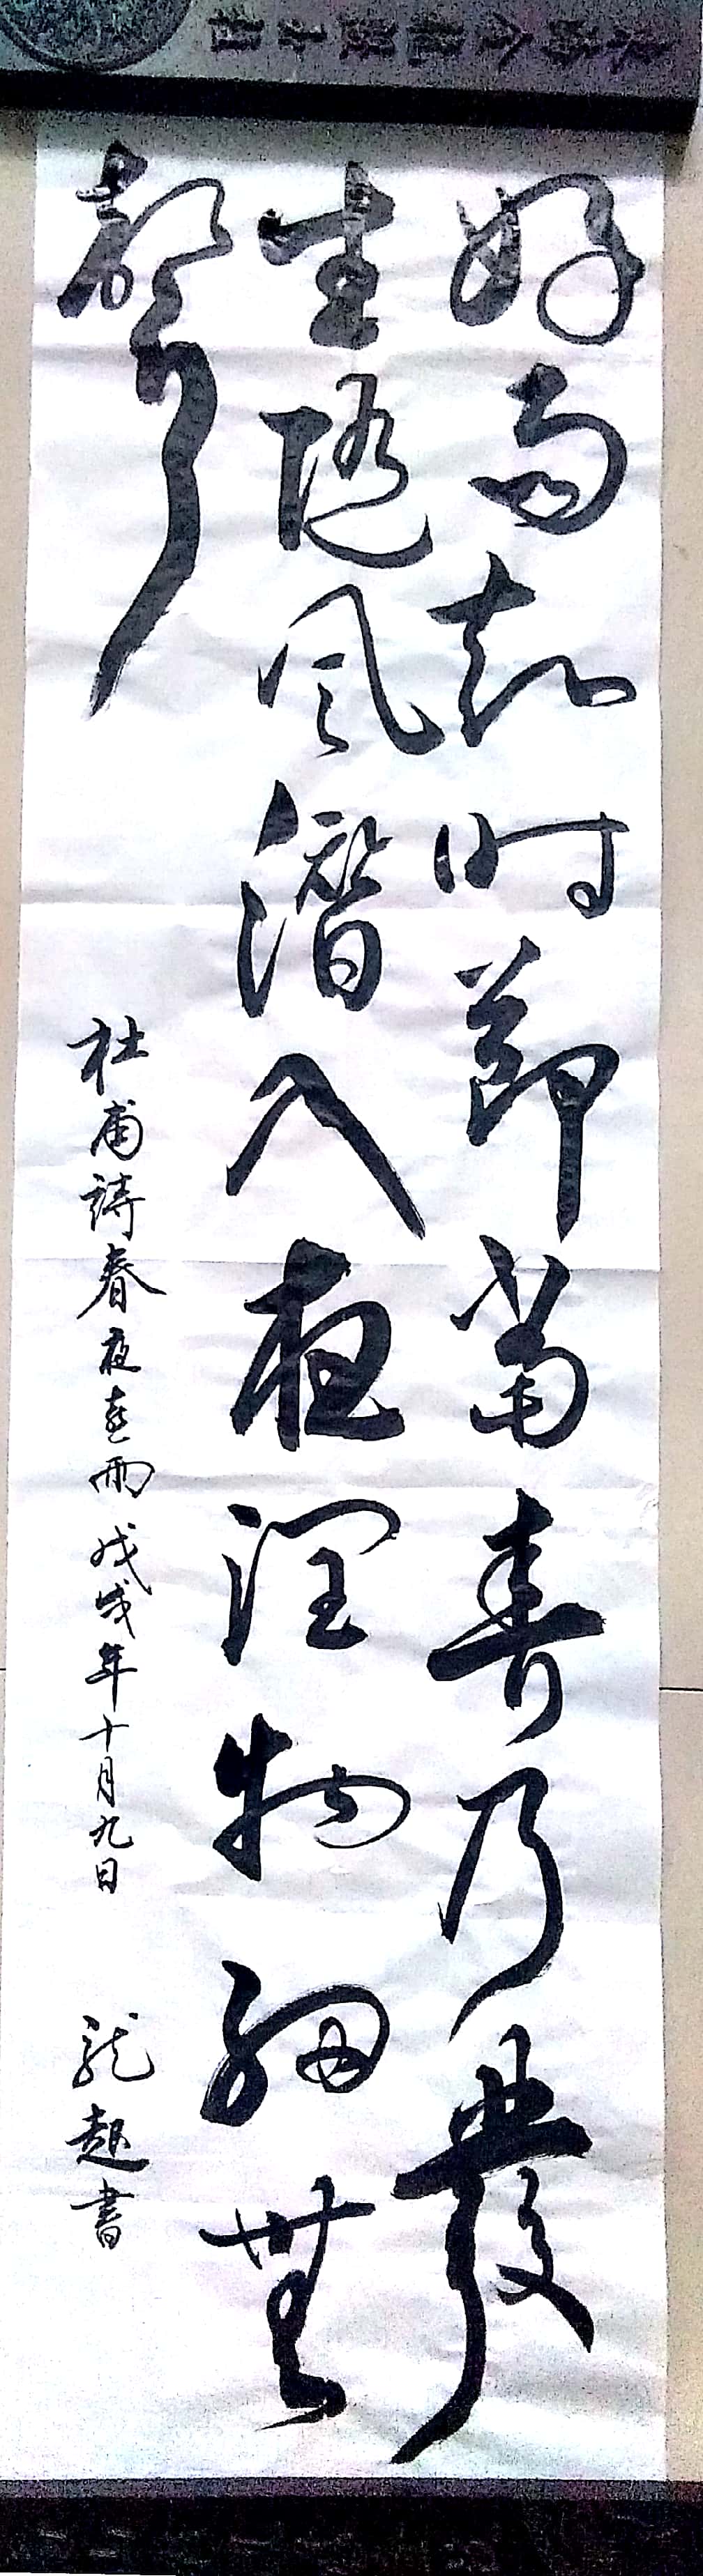 好雨知时節當春乃發
生随风潛入夜润物細無
聲
杜甫詩春夜喜雨 戊戌年十月九日 龙起書